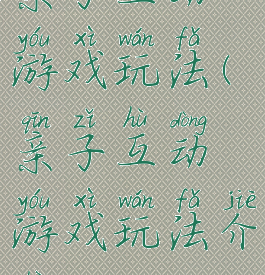 yóu xì wán fǎ
游戏玩法(
qīn zǐ hù dòng
亲子互动
yóu xì wán fǎ jiè
游戏玩法介